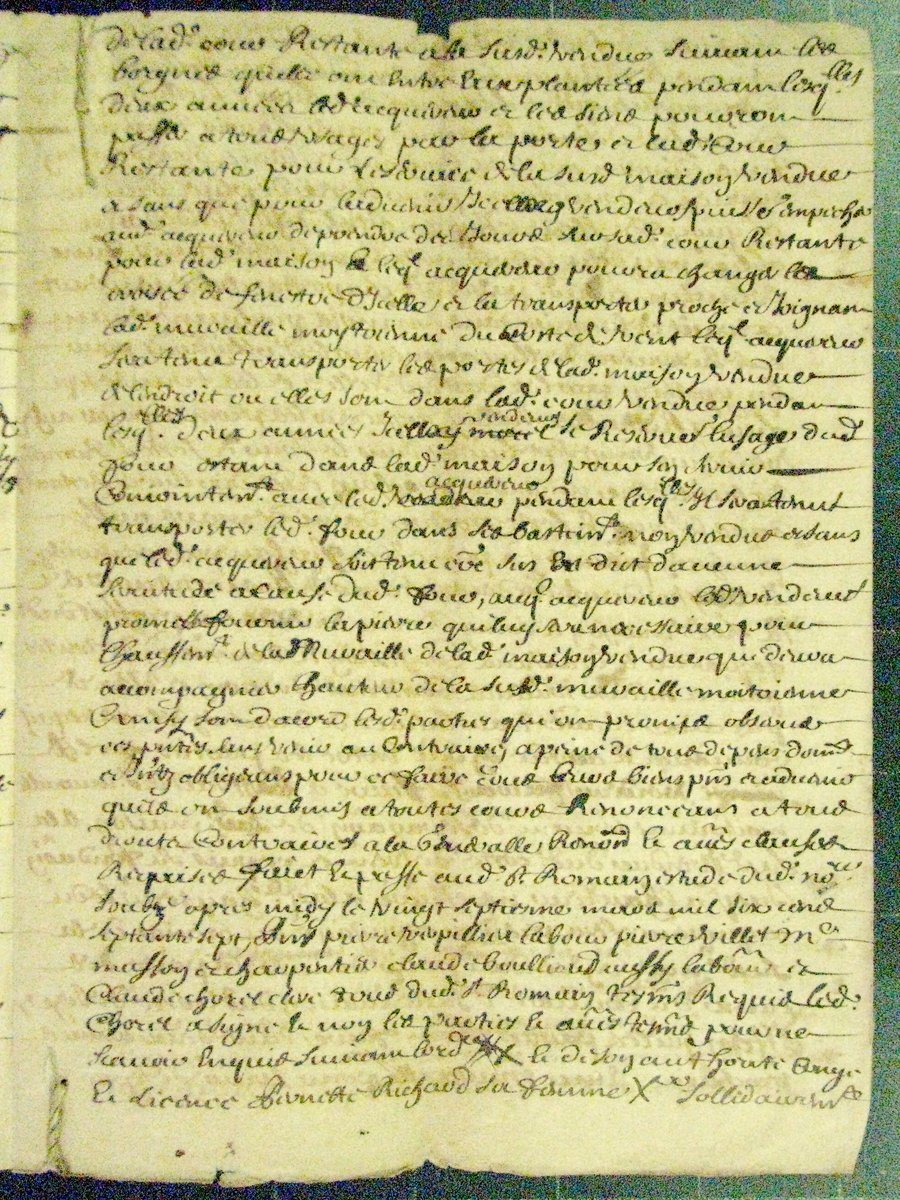 de lad. cour Restante a la susd. vendue suivam les
borgnes quelle on entre eux plantées pendam lesq.lles
deux années led. acquereur et les siens pourron
passer a tous usages par la porte et lad. cour
Restante pour les de la susd. maison vendue
et sans que pour vendeur puisse empecher
aud. acquereur de prendre des sur lad. cour Restante
pour lad. maison leq.l acquereur pourra changer les
de fenetre d'Icelle et la transporter proche et Joignan
lad. muraille moytoienne du Costé de vent leq.l acquereur
sera tenu transporter les portes de lad. maison vendue
de lendroit ou elles son dans lad. cour vendue pendan
lesq.lles deux années Icelluy vendeur se Reserve lusage dud.
four estant dans lad. maison pour son
Conjointem.t avec led. acquereur pendam lesq.lles Il sera tenu
transporter led. four dans les bastim.t non vendus et sans
que led. acquereur soit tenu d'aucune
servitude a cause dud. four, auq. acquereur led. vendeur
promet fournir la pierre quil luy sera necessaire pour
de lad. Muraille de lad. maison vendue que devra
acompagnier hauteur de la susd. muraille moitoienne
Et ainsy son d'acord lesd. parties qui on promise observer
ces pntes sans venir au Contraire, a peine de tous depens dom.
et Intz obligeans pour ce faire tous leurs biens pns et advenir
quils on soubmis a toutes cours Renoncans a tous
droits Contraires a la Generalle Renon.on et aues clauses
Reprises faict et passé aud. St Romain estude dud. no.re
soubz.e apres midy le vingt septieme mars mil six cens
septante sept, pns pierre labour pierre villet M.e
masson et charpentier claude boullioud aussy labour et
Claude chorel clerc tous dud. St Romain tesms Requis led.
Chorel a signe et non les parties et aues tems pour ne
scavoir enquis suivam lord. de son authorité Conge
et Licence Benette Richard sa femme X sollidairem.t